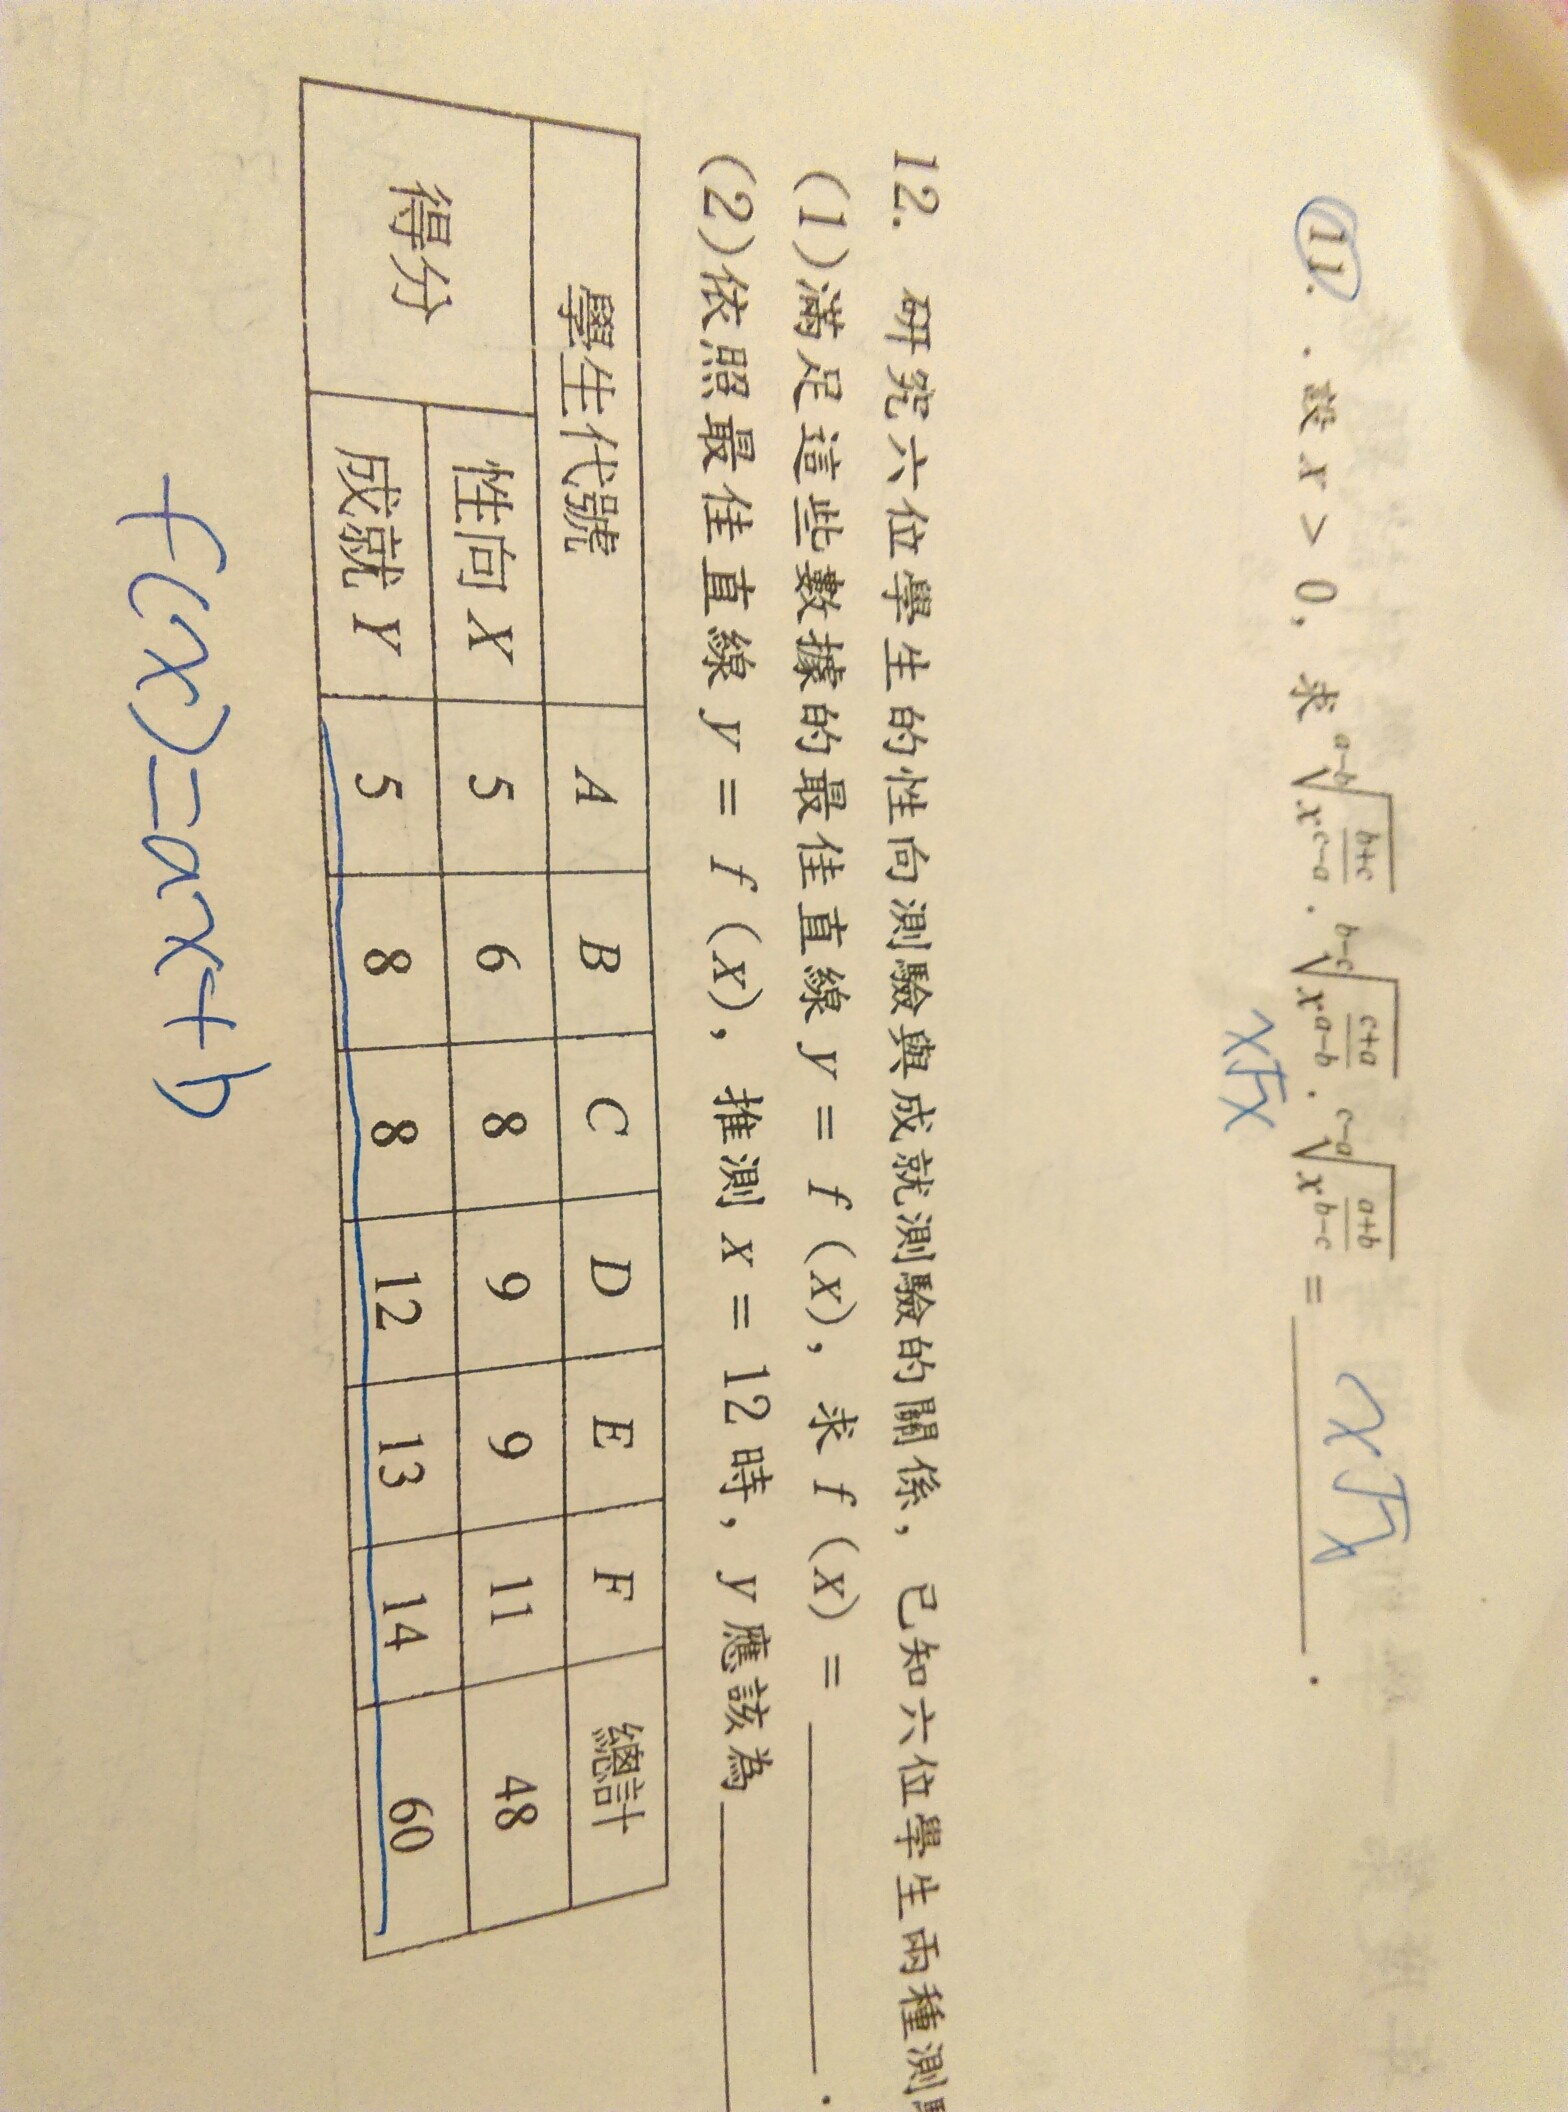 11. 設 x > 0, 求 \sqrt[a-b]{x^{\frac{b+c}{c-a}}} · \sqrt[b-c]{x^{\frac{c+a}{a-b}}} · \sqrt[c-a]{x^{\frac{a+b}{b-c}}} = x√x .
x√x
12. 研究六位學生的性向測驗與成就測驗的關係, 已知六位學生兩種測
(1)滿足這些數據的最佳直線 y = f (x), 求 f (x) = .
(2)依照最佳直線 y = f (x), 推測 x = 12 時, y 應該為
學生代號 A B C D E F 總計
得分 性向 X 5 6 8 9 9 11 48
成就 Y 5 8 8 12 13 14 60
f(x)=ax+b